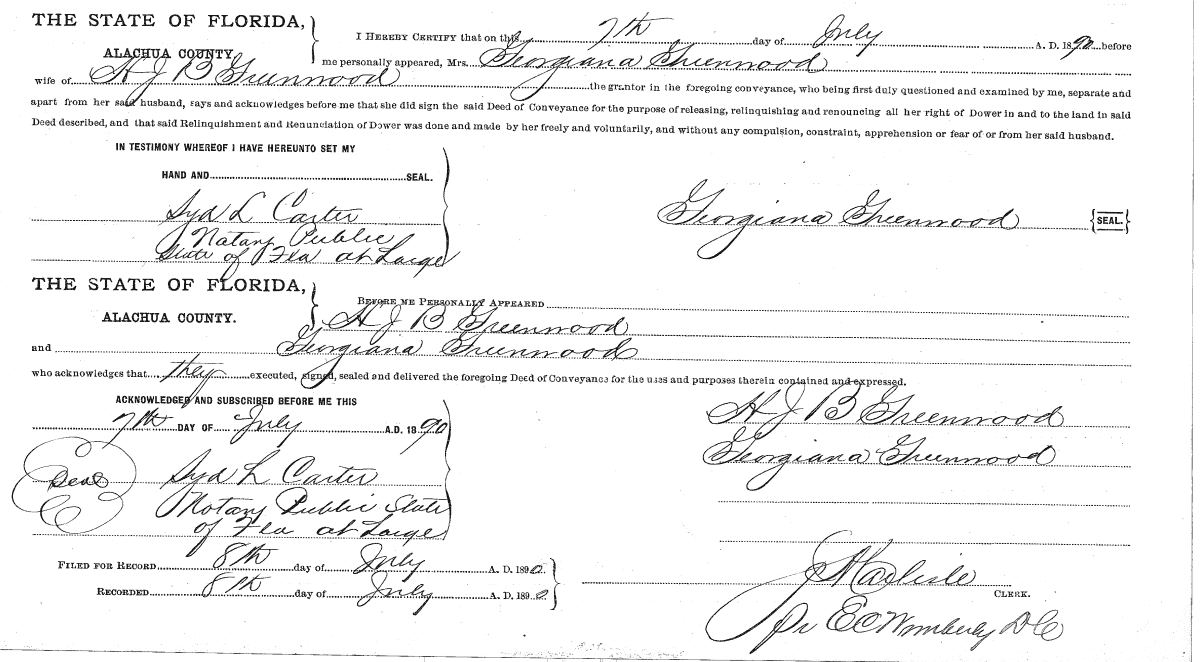 THE STATE OF FLORIDA,
ALACHUA COUNTY.
I HEREBY CERTIFY that on this 7th day of July A. D. 1890 before
me personally appeared, Mrs. Georgiana Greenwood
wife of H J B Greenwood the grantor in the foregoing conveyance, who being first duly questioned and examined by me, separate and
apart from her said husband, says and acknowledges before me that she did sign the said Deed of Conveyance for the purpose of releasing, relinquishing and renouncing all her right of Dower in and to the land in said
Deed described, and that said Relinquishment and Renunciation of Dower was done and made by her freely and voluntarily, and without any compulsion, constraint, apprehension or fear of or from her said husband.
IN TESTIMONY WHEREOF I HAVE HEREUNTO SET MY
HAND AND SEAL.
Syd L Carter
Notary Public
State of Fla at Large
Georgiana Greenwood {SEAL.}
THE STATE OF FLORIDA,
ALACHUA COUNTY.
BEFORE ME PERSONALLY APPEARED
H J B Greenwood
and Georgiana Greenwood
who acknowledges that they executed, signed, sealed and delivered the foregoing Deed of Conveyance for the uses and purposes therein contained and expressed.
ACKNOWLEDGED AND SUBSCRIBED BEFORE ME THIS
7th DAY OF July A.D. 1890
Seal
Syd L Carter
Notary Public State
of Fla at Large
H J B Greenwood
Georgiana Greenwood
FILED FOR RECORD 8th day of July A. D. 1890.
RECORDED 8th day of July A. D. 1890
J A Carlisle
CLERK.
Pr E C Wimberly D C